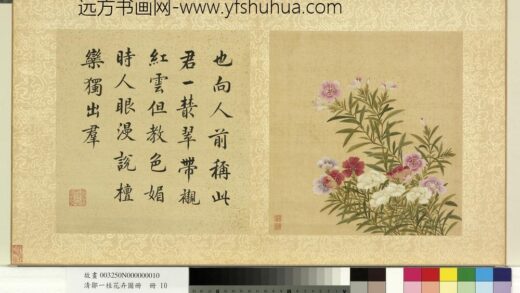 远方书画网-www.yfshuhua.com
也向人前稱此
君一叢翠帶襯
紅雲但教色媚
時人眼漫說檀
欒獨出羣
故畫 003250N000000010
清鄒一桂花卉圖冊 冊 10